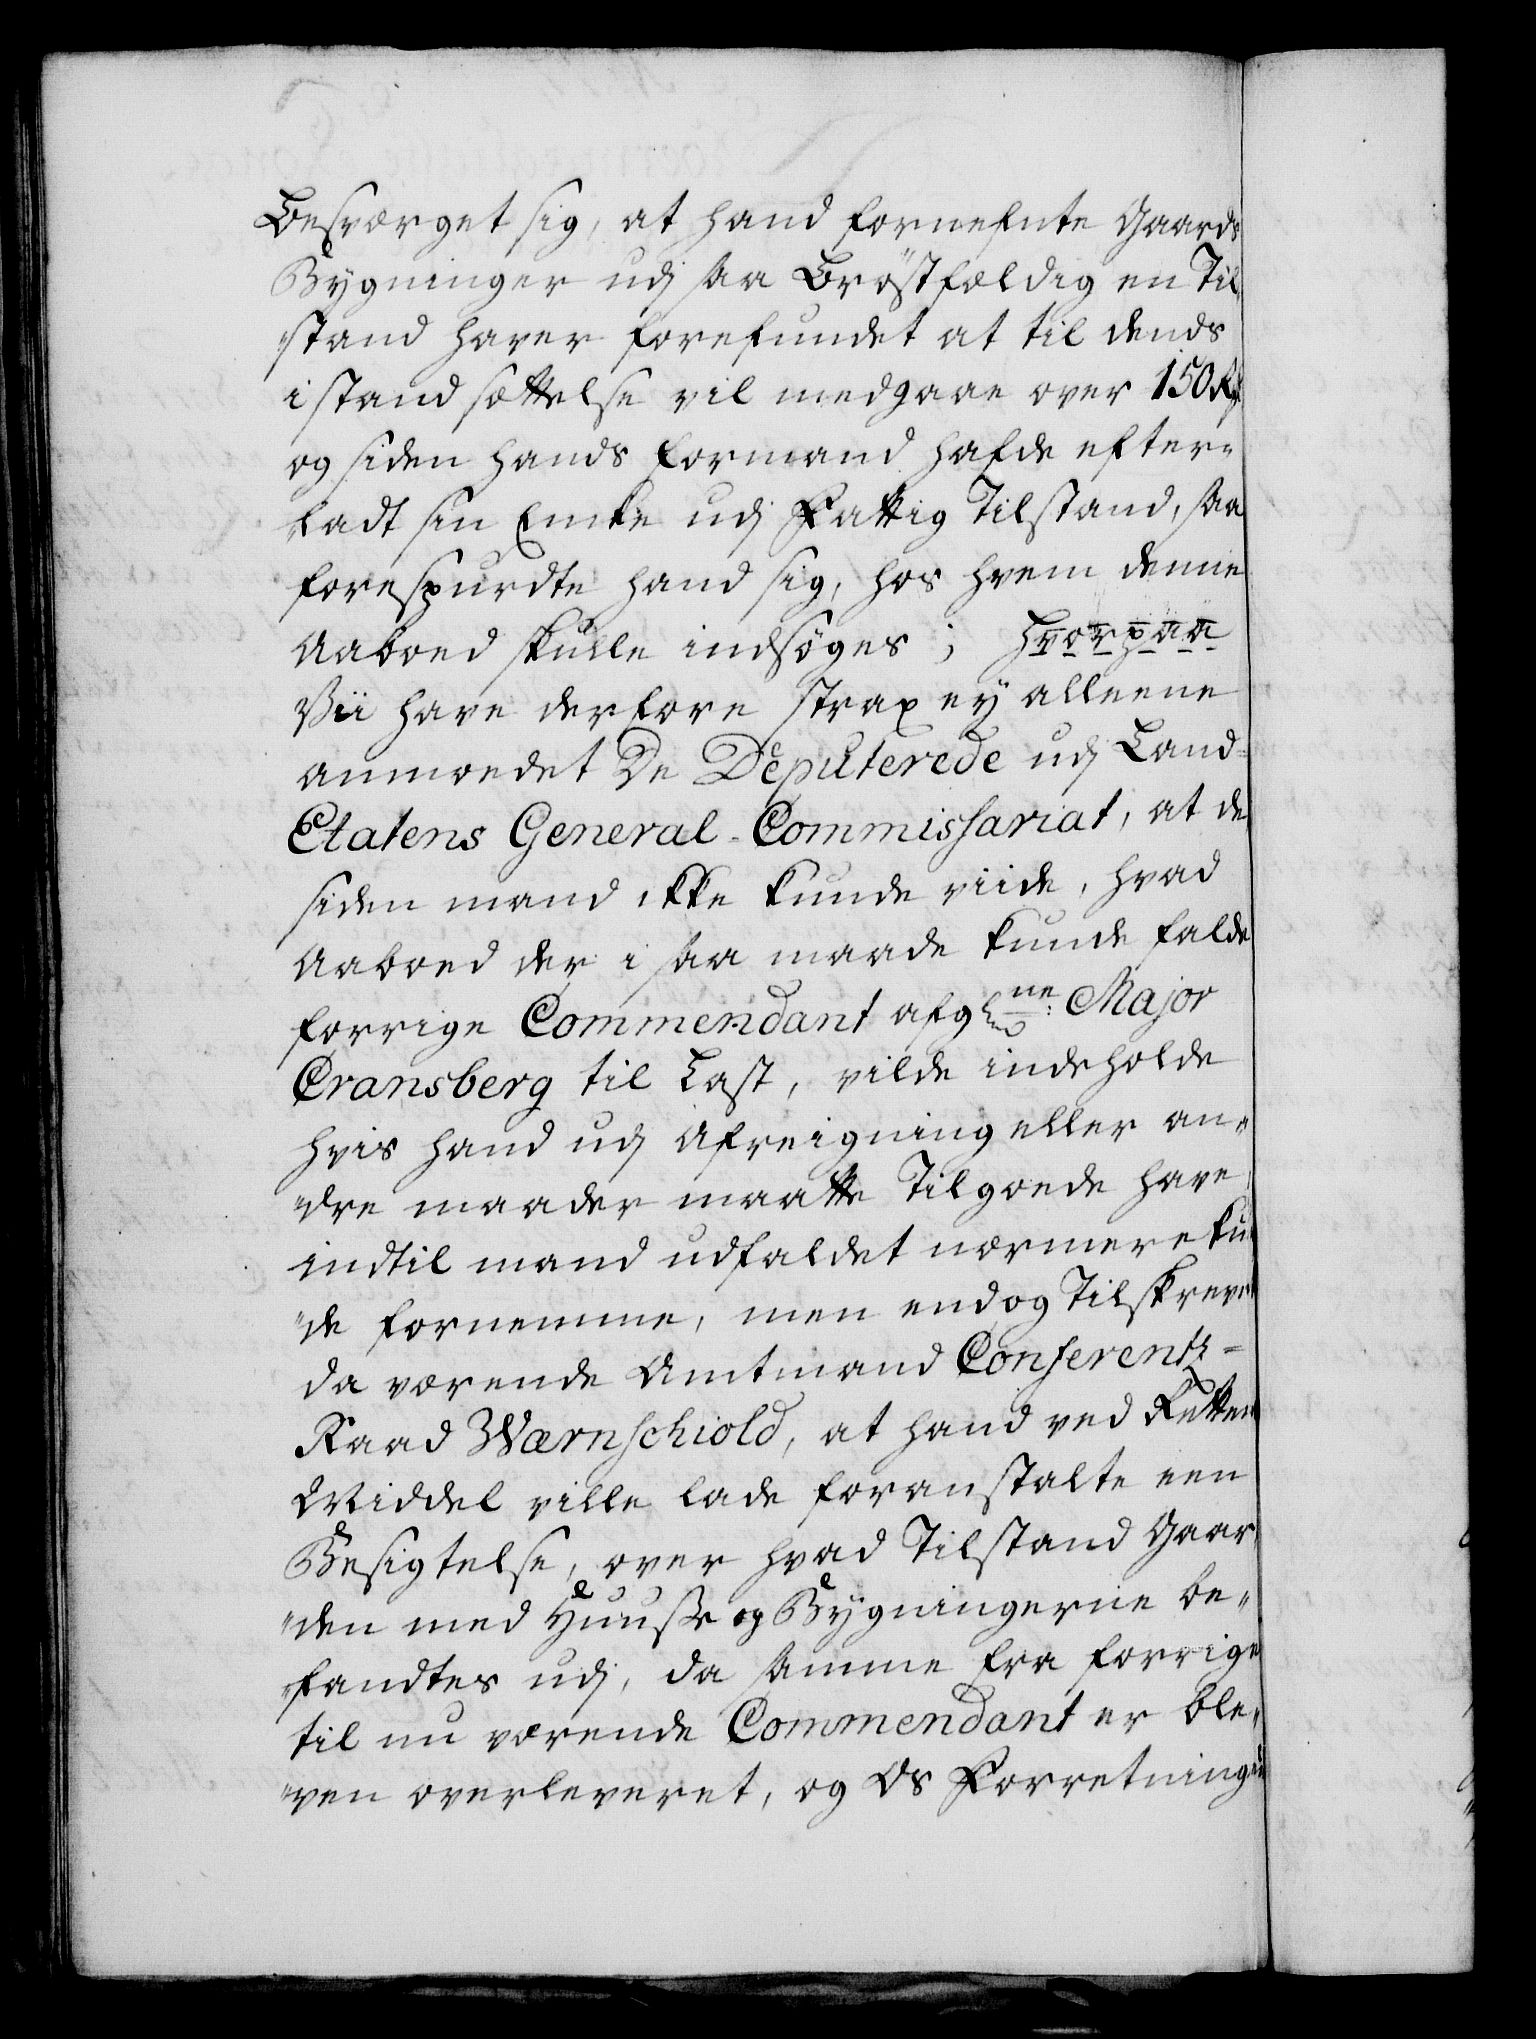 Besværget sig, at hand fornefnte Gaards
Bygninger udj saa Bröstfældig en Til¬
stand haver forefundet at til dends
istandsættelse vil medgaae over 150 Rdr.
og siden hands Formand hafde efter¬
ladt sin Encke udj Fattig Tilstand, saa
forespurdte hand sig, hos hvem denne
Aaboed skulle indsøges; hvorpaa
Vii have derfore strax ey alleene
anmoedet De Deputerede udj Land¬
Etatens General-Commissariat, at de
siden mand ikke kunde viide, hvad
Aaboed der i saa maade kunde falde
forrige Commendant afgl. ne: Major
Cransberg til Last, vilde indeholde
hvis hand udj Afreigning eller an¬
dre maader maatte Tilgoede have
indtil mand udfaldet nærmere kun
de fornemme, men end og Tilskrevet
da værende Amtmand Conferentz-
Raad Wærnschiold, at hand ved Rettens
Middel ville lade foranstalte een
Besigtelse, over hvad Tilstand Gaar
den med Huuse og Bygningerne be¬
fandtes udj, da samme fra forrige
til nu værende Commendant er ble¬
ven overleveret, og Os Forretningen